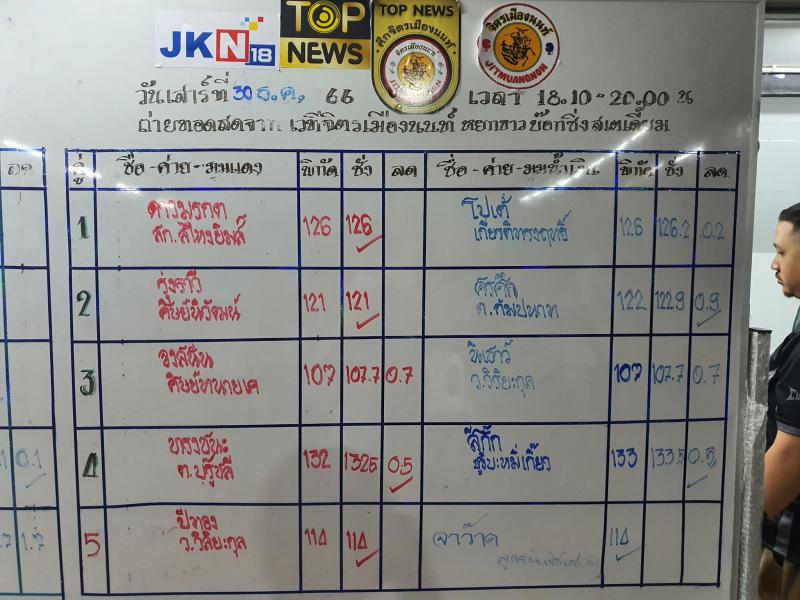 JKN18
TOP NEWS
TOP NEWS
ศึกจิตรเมืองนนท์
จิตรเมืองนนท์
JITMUANGNON
วันเสาร์ที่ 30 ธ.ค. 66 เวลา 18.10-20.00 น
ถ่ายทอดสดจาก เวทีจิตรเมืองนนท์ หยกขาว บ๊อกซิ่ง สเตเดี้ยม
ลด
คู่ ชื่อ-ค่าย-มุมแดง พิกัด ชั่ง ลด ชื่อ-ค่าย-มุมน้ำเงิน พิกัด ชั่ง ลด
1 ดาวมรกต 126 126 โปเต้ 126 126.2 0.2
เกียรติทรงฤทธิ์
2 รุ่งราวี 121 121 122 122.9 0.9
ศิษย์นิวัฒน์
3 107 107.7 0.7 107 107.7 0.7
ว.วิริยะกุล
0.1
4 ทรงชนะ 132 132.5 0.5 133 133.5 0.5
1.7
5 ปีทอง 114 114 จาว๊าด 114
ว.วิลิยะกุล